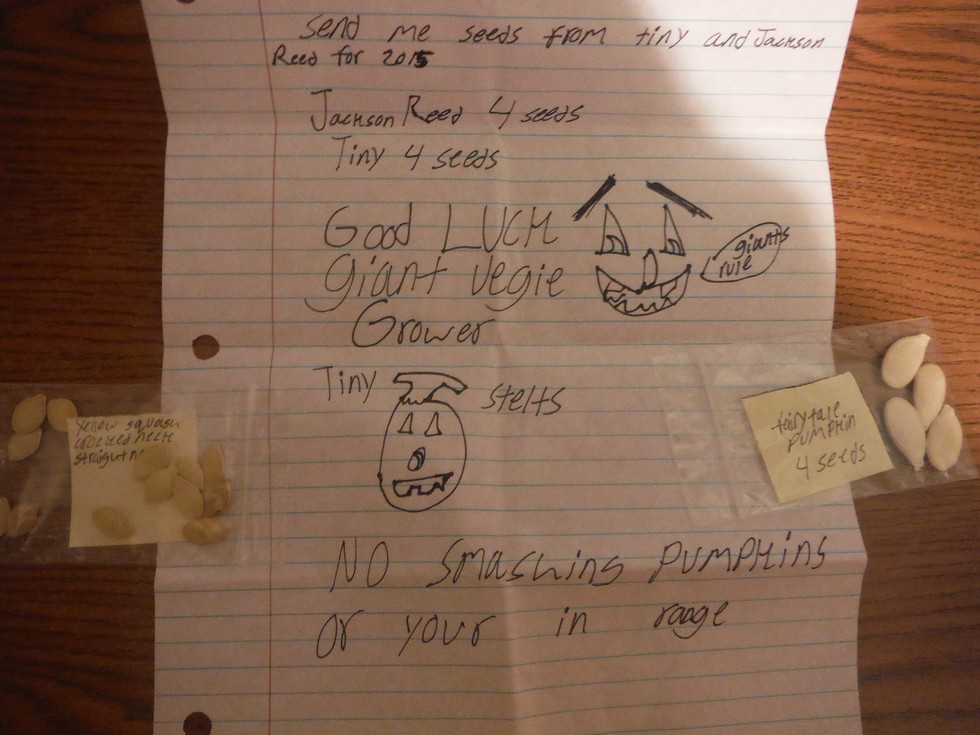 send me seeds from tiny and Jackson
Reed for 2015
Jackson Reed 4 seeds
Tiny 4 seeds
Good LUCK
giant vegie
Grower
giants
rule
Tiny
stelts
yellow squash
crooked neck
straight
fairytale
pumpkin
4 seeds
NO Smashing PUMPKins
or your in